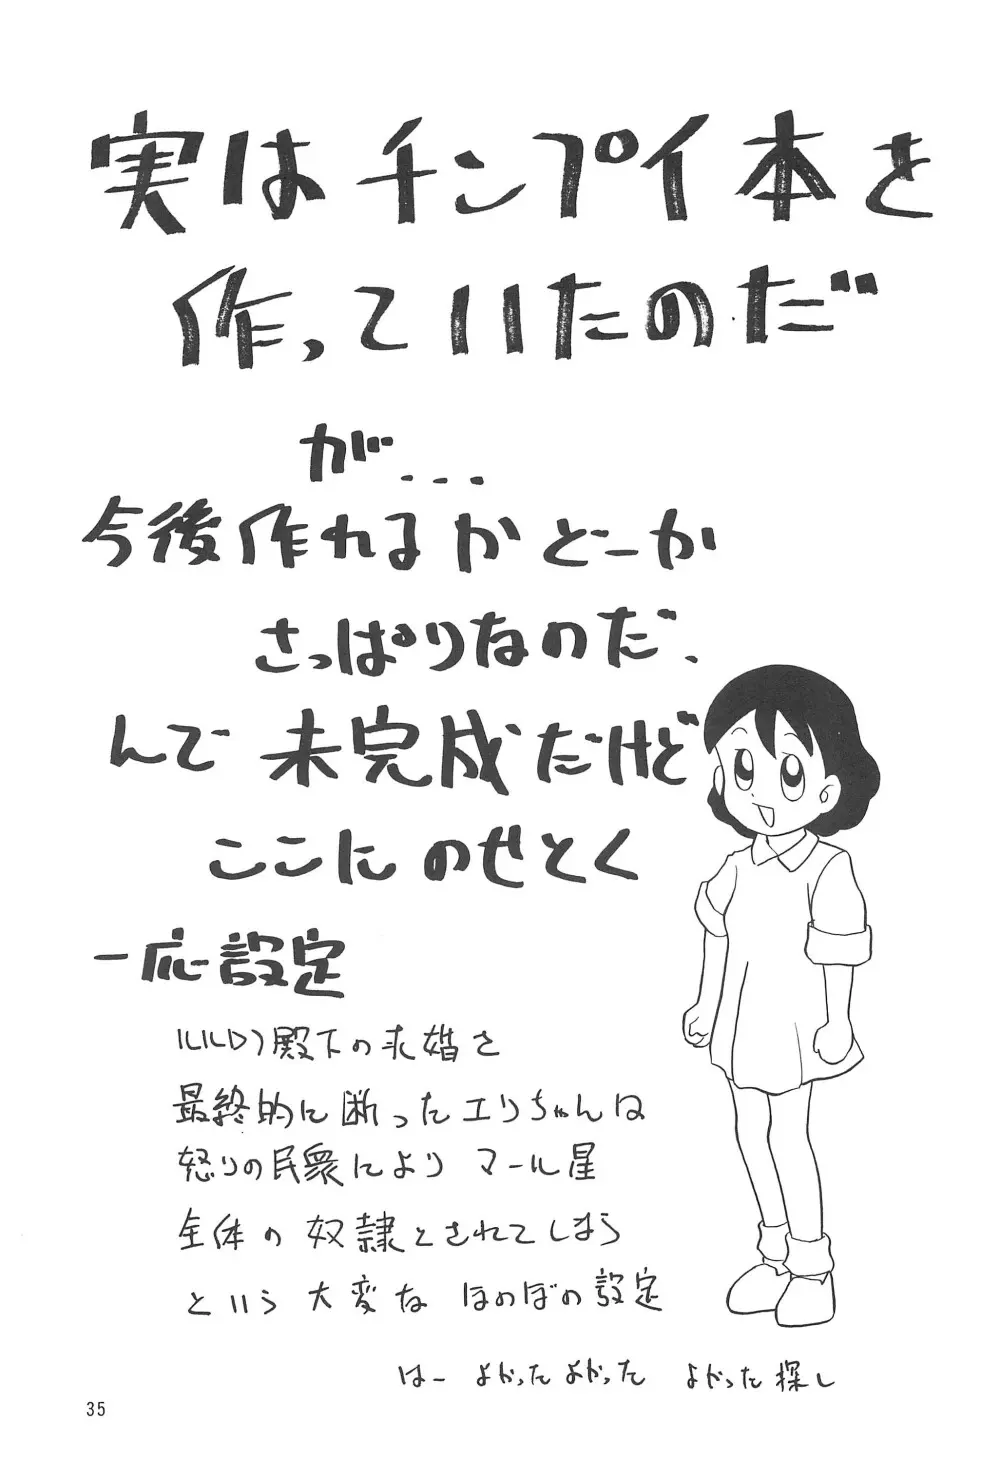 実はチンプイ本を
作っていたのだ
が...
今後作れるかどーか
さっぱりなのだ、
んで未完成だけど
ここにのせとく
一応設定
ルルロフ殿下の求婚を
最終的に断ったエリちゃんは
怒りの民衆により マール星
全体の奴隷とされてしまう
という大変なほのぼの設定
はー よかったよかった よかった探し
35